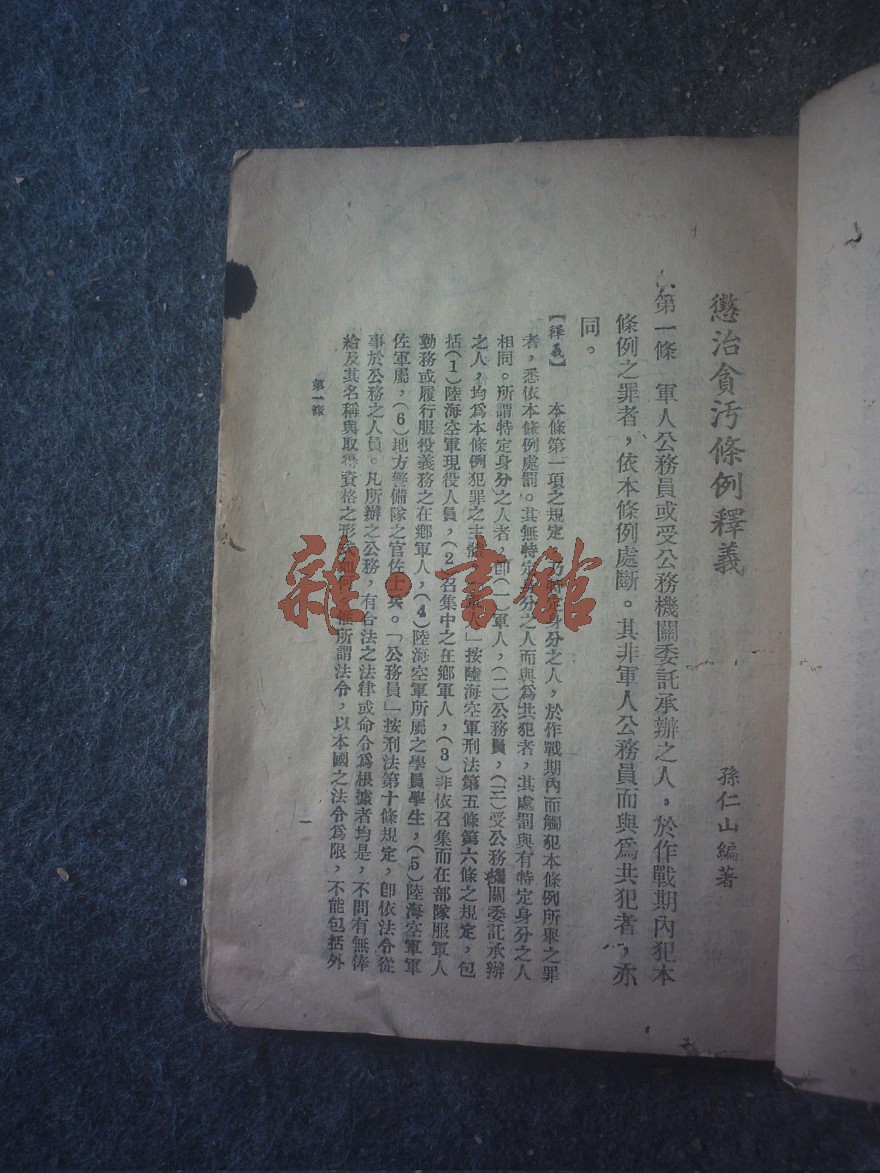 懲治貪汚條例釋義
孫仁山編著
第一條　軍人公務員或受公務機關委託承辦之人，於作戰期內犯本
條例之罪者，依本條例處斷。其非軍人公務員而與爲共犯者，亦
同。
【釋義】　本條第一項之規定，乃特定身分之人，於作戰期內而觸犯本條例所舉之罪
者，悉依本條例處罰。其無特定身分之人而與爲共犯者，其處罰與有特定身分之人
相同。所謂特定身分之人者，卽(一)軍人，(二)公務員，(三)受公務機關委託承辦
之人，均爲本條例犯罪之主體。「軍人」按陸海空軍刑法第五條第六條之規定，包
括(1)陸海空軍現役人員，(2)召集中之在鄉軍人，(3)非依召集而在部隊服軍人
勤務或履行服役義務之在鄉軍人，(4)陸海空軍所屬之學員學生，(5)陸海空軍軍
佐軍屬，(6)地方警備隊之官佐士兵。「公務員」按刑法第十條規定，卽依法令從
事於公務之人員。凡所辦之公務，有合法之法律或命令爲根據者均是，不問有無俸
給及其名稱與取得資格之形式如何。惟所謂法令，以本國之法令爲限，不能包括外
第一條
一
雜·書館